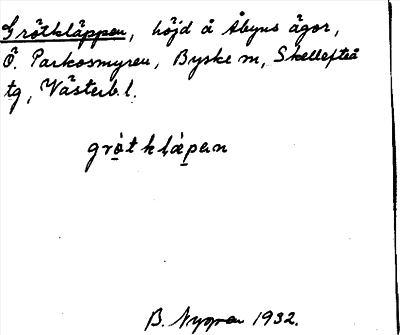 Grötkläppen, höjd å Åbyns ägor,
Ö. Parkosmyren, Byske m, Skellefteå
tg, Västerb. l.
grö̀tklä̀pen
B. Nyman 1932.